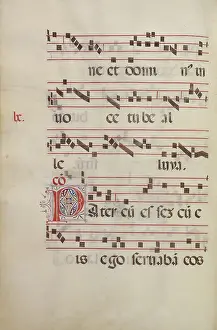 ne et domi n' in
lx.
uo ce tube al
le luya.
co
Pater cū es sez cū e
is ego seruabā eos